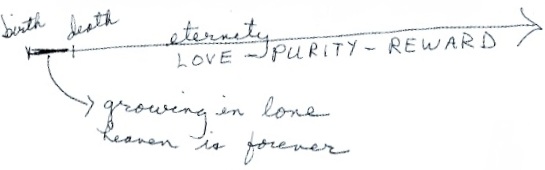 birth death
eternity
LOVE - PURITY - REWARD
growing in love
heaven is forever